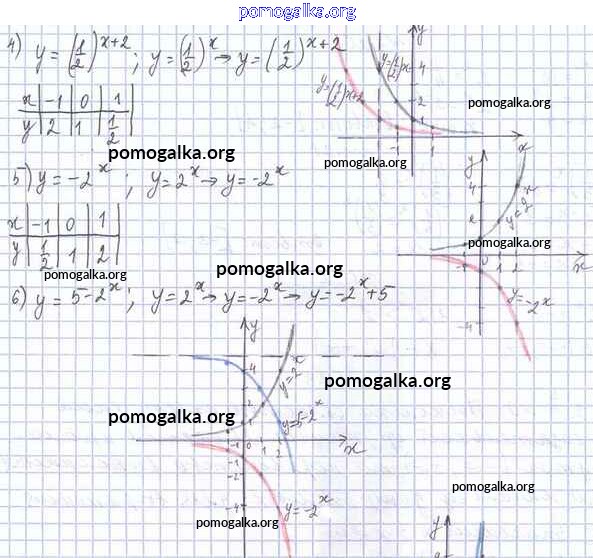 pomogalka.org
4) y = (1/2)^(x+2) ; y = (1/2)^x → y = (1/2)^(x+2)
x | -1 | 0 | 1
y | 2 | 1 | 1/2
y
y=(1/2)^x
y=(1/2)^x+2
4
2
1
-1
1
x
pomogalka.org
pomogalka.org
pomogalka.org
5) y = -2^x ; y = 2^x → y = -2^x
x | -1 | 0 | 1
y | 1/2 | 1 | 2
y
4
2
y=2^x
-1 0 1 2
x
y=-2^x
-4
pomogalka.org
pomogalka.org
pomogalka.org
6) y = 5-2^x ; y = 2^x → y = -2^x → y = -2^x + 5
y
4
2
1
y=2^x
y=5-2^x
0 1 2
x
-1
-2
-4
y=-2^x
pomogalka.org
pomogalka.org
pomogalka.org
pomogalka.org
y